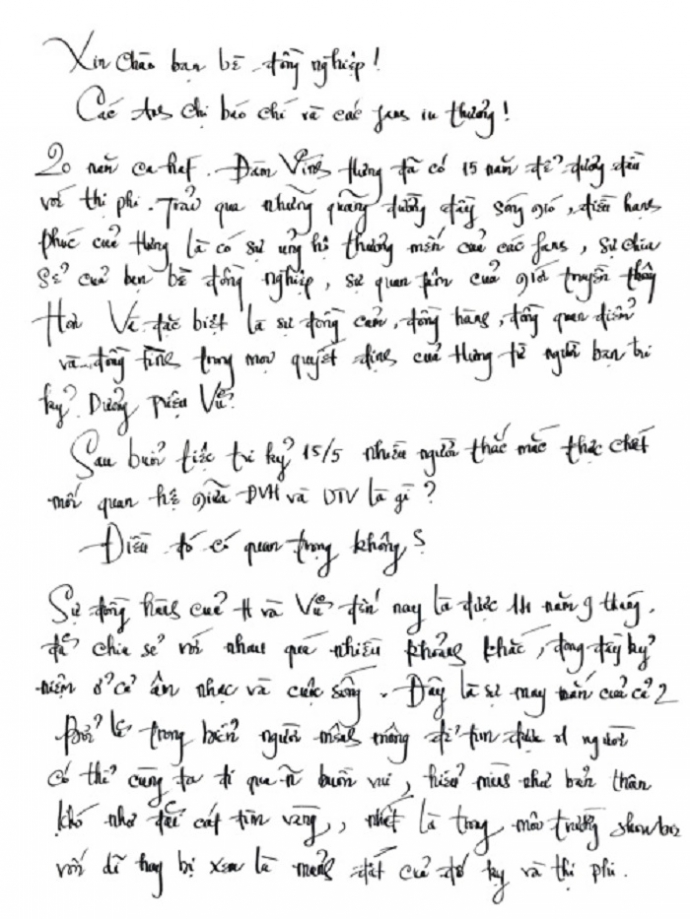 Xin chào bạn bè đồng nghiệp!
Các Anh chị báo chí và các fans iu thương!
20 năm ca hát. Đàm Vĩnh Hưng đã có 15 năm để đương đầu
với thị phi. Trải qua những quãng đường đầy sóng gió, điều hạnh
phúc của Hưng là có sự ủng hộ thương mến của các fans, sự chia
sẻ của bạn bè đồng nghiệp, sự quan tâm của giới truyền thông
Hơn Và đặc biệt là sự đồng cảm, đồng hành, đồng quan điểm
và đồng tình trong mọi quyết định của Hưng từ người bạn tri
kỷ? Dương Triệu Vũ.
Sau buổi tiệc tri kỷ 15/5 nhiều người thắc mắc thực chất
mối quan hệ giữa ĐVH và DTV là gì?
Điều đó có quan trọng không?
Sự đồng hành của H và Vũ đến nay là được 14 năm 9 tháng.
đã chia sẻ với nhau quá nhiều khoảnh khắc, đong đầy kỷ
niệm ở cả âm nhạc và cuộc sống. Đây là sự may mắn của cả 2
Bởi lẽ trong biển người mênh mông để tìm được 1 người
có thể cùng ta đi qua n~ buồn vui, hiểu mình như bản thân
khó như đãi cát tìm vàng, nhất là trong môi trường showbiz
vốn dĩ hay bị xem là mảnh đất của đố kỵ và thị phi.